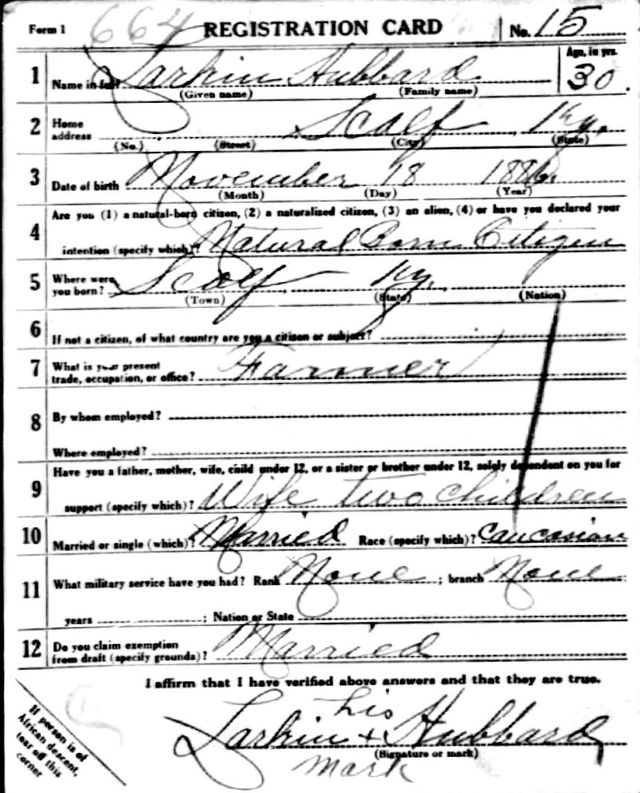 Form 1 664 REGISTRATION CARD No. 15
1 Name in full Larkin Hubbard Age, in yrs. 30
(Given name) (Family name)
2 Home address Scalf, Ky.
(No.) (Street) (City) (State)
3 Date of birth November 18 1886
(Month) (Day) (Year)
4 Are you (1) a natural-born citizen, (2) a naturalized citizen, (3) an alien, (4) or have you declared your
intention (specify which)? Natural Born Citizen
5 Where were you born? Scalf Ky.
(Town) (State) (Nation)
6 If not a citizen, of what country are you a citizen or subject?
7 What is your present trade, occupation, or office? Farmer
8 By whom employed?
Where employed?
9 Have you a father, mother, wife, child under 12, or a sister or brother under 12, solely dependent on you for
support (specify which)? Wife two children
10 Married or single (which)? Married Race (specify which)? Caucasian
11 What military service have you had? Rank None ; branch None ;
years ; Nation or State
12 Do you claim exemption from draft (specify grounds)? Married
I affirm that I have verified above answers and that they are true.
his
Larkin + Hubbard
(Signature or mark)
mark
If person is of
African descent,
tear off this
corner